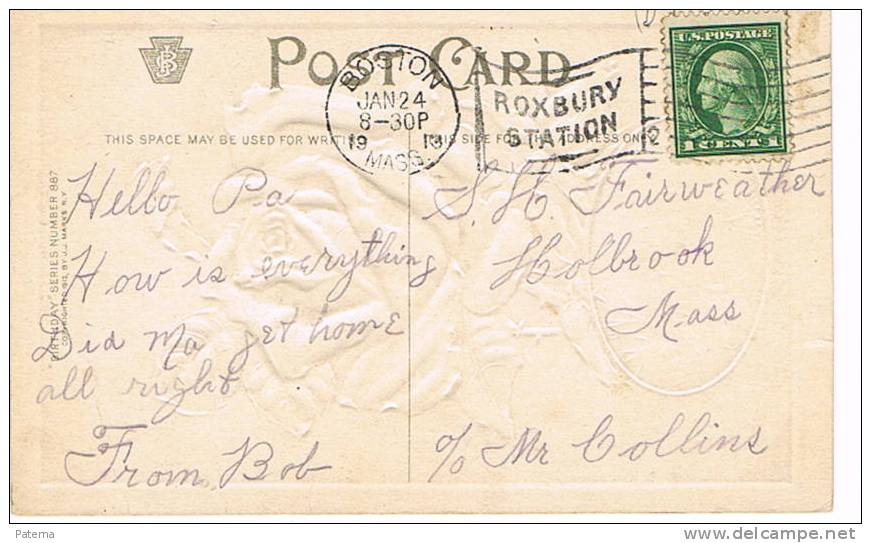 POST CARD
BOSTON
JAN 24
8-30P
19 13
MASS.
ROXBURY
STATION
U.S. POSTAGE
1 CENT 1
THIS SPACE MAY BE USED FOR WRITI
THIS SIDE FOR THE ADDRESS ON
"BIRTHDAY" SERIES NUMBER 887
Hello Pa
How is everything
Did Ma get home
all right
From Bob
S. H. Fairweather
Holbrook
Mass
c/o Mr Collins
Paterna
www.delcampe.net